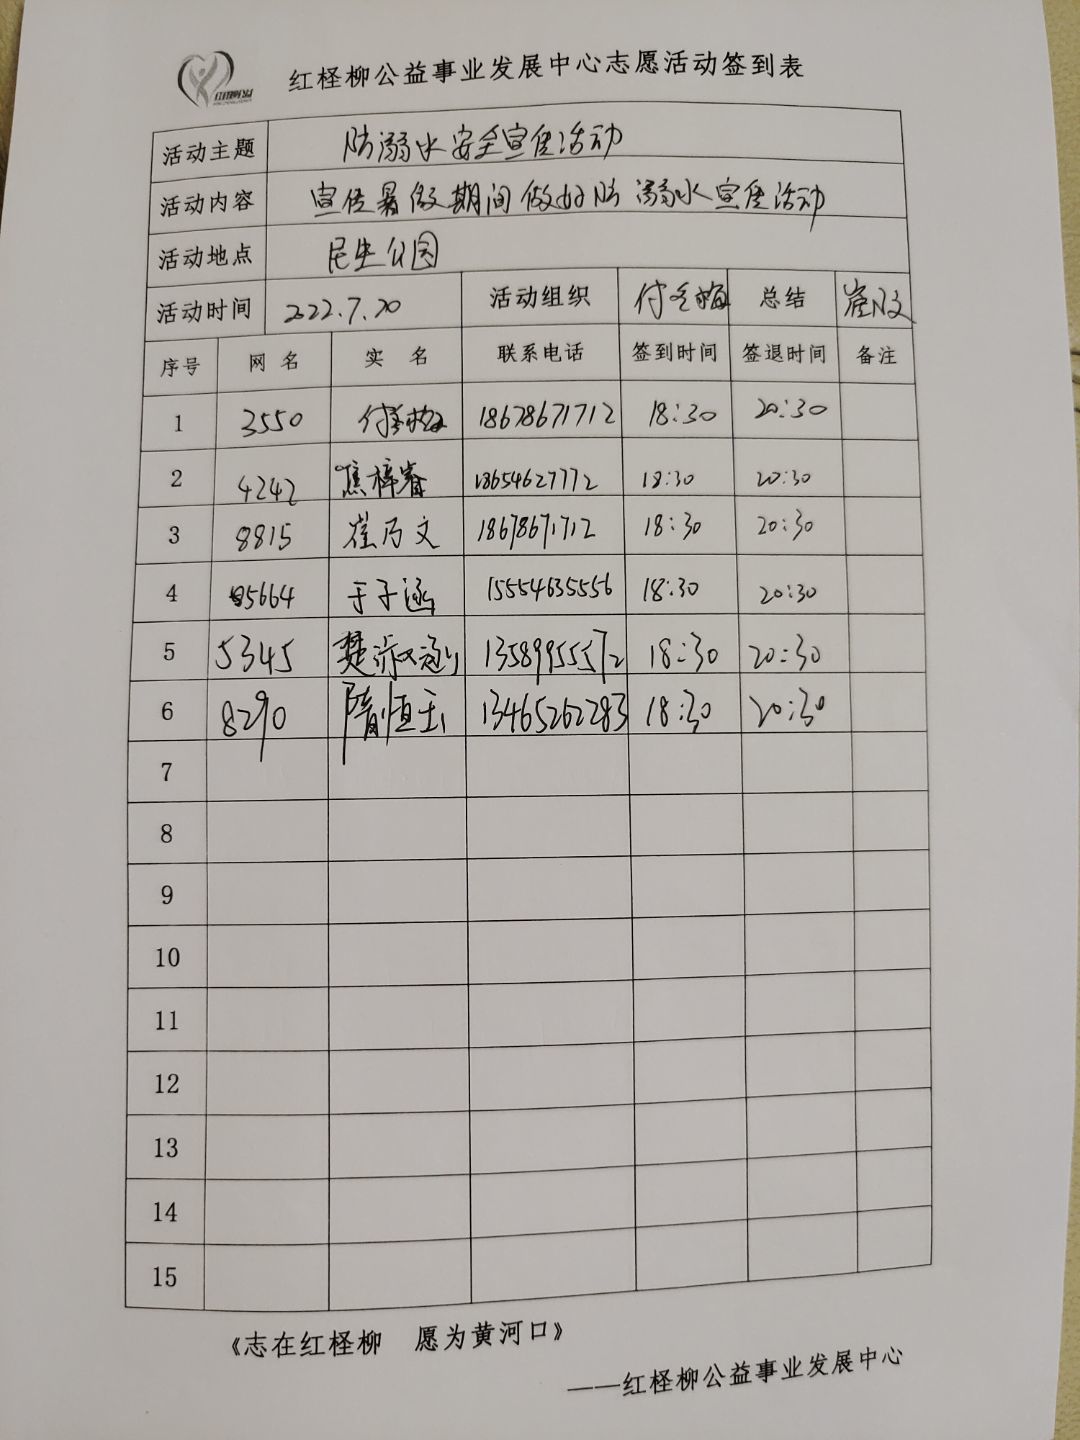 红柽柳公益事业发展中心志愿活动签到表
活动主题 防溺水安全宣传活动
活动内容 宣传暑假期间做好防溺水宣传活动
活动地点 民生公园
活动时间 2022.7.20 活动组织 付冬梅 总结 崔乃文
序号 网名 实名 联系电话 签到时间 签退时间 备注
1 3550 付冬梅 18678671712 18:30 20:30
2 4242 焦梓睿 18654627772 18:30 20:30
3 8815 崔乃文 18678671712 18:30 20:30
4 5664 于子涵 15554635556 18:30 20:30
5 5345 楚 13589955572 18:30 20:30
6 8290 隋恒玉 13465262283 18:30 20:30
7
8
9
10
11
12
13
14
15
《志在红柽柳 愿为黄河口》
——红柽柳公益事业发展中心